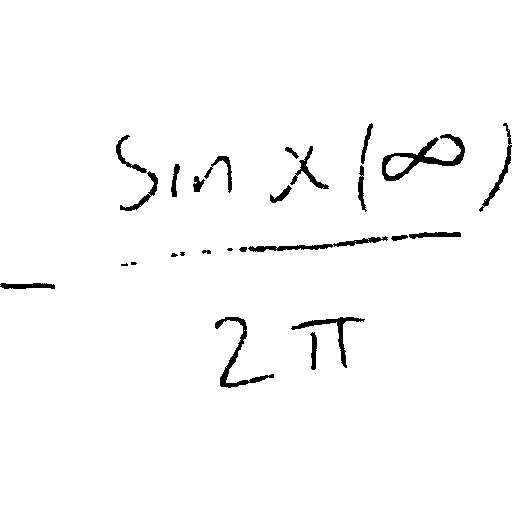 - \frac{\sin x(\infty)}{2\pi}